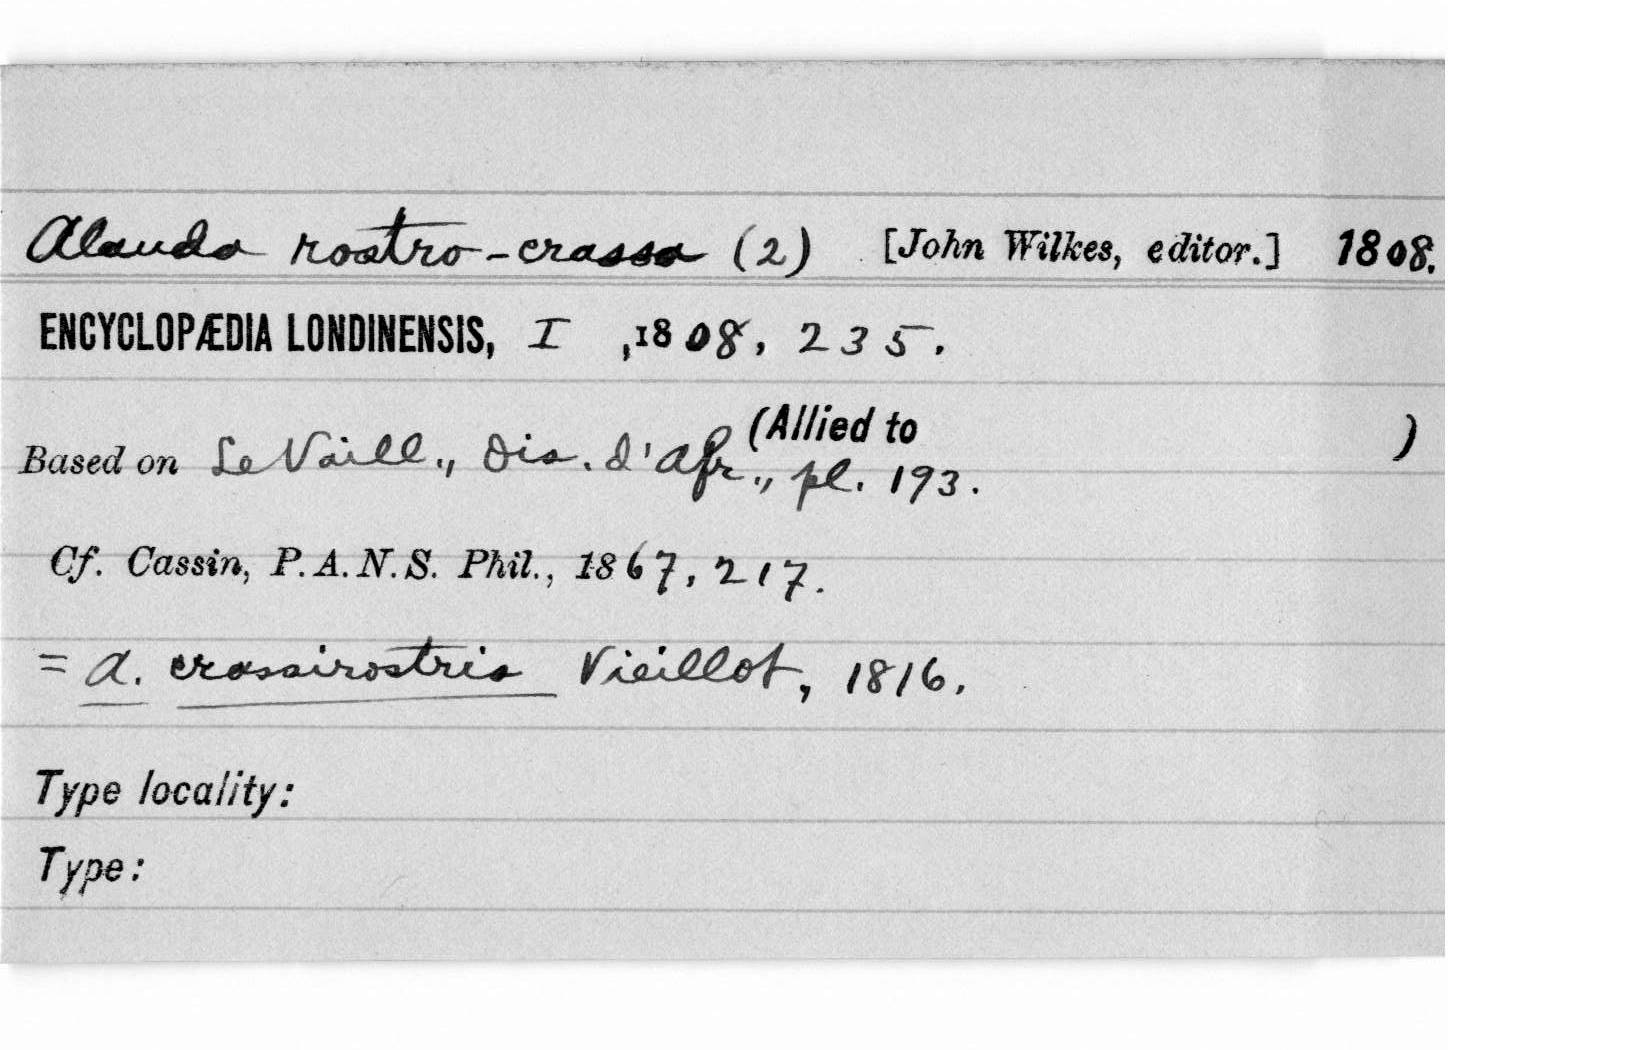 Alauda rostro-crassa (2) [John Wilkes, editor.] 1808.
ENCYCLOPÆDIA LONDINENSIS, I ,1808, 235.
(Allied to )
Based on Le Vaill., Ois. d'Afr., pl. 193.
Cf. Cassin, P.A.N.S. Phil., 1867, 217.
= A. crassirostris Vieillot, 1816.
Type locality:
Type: